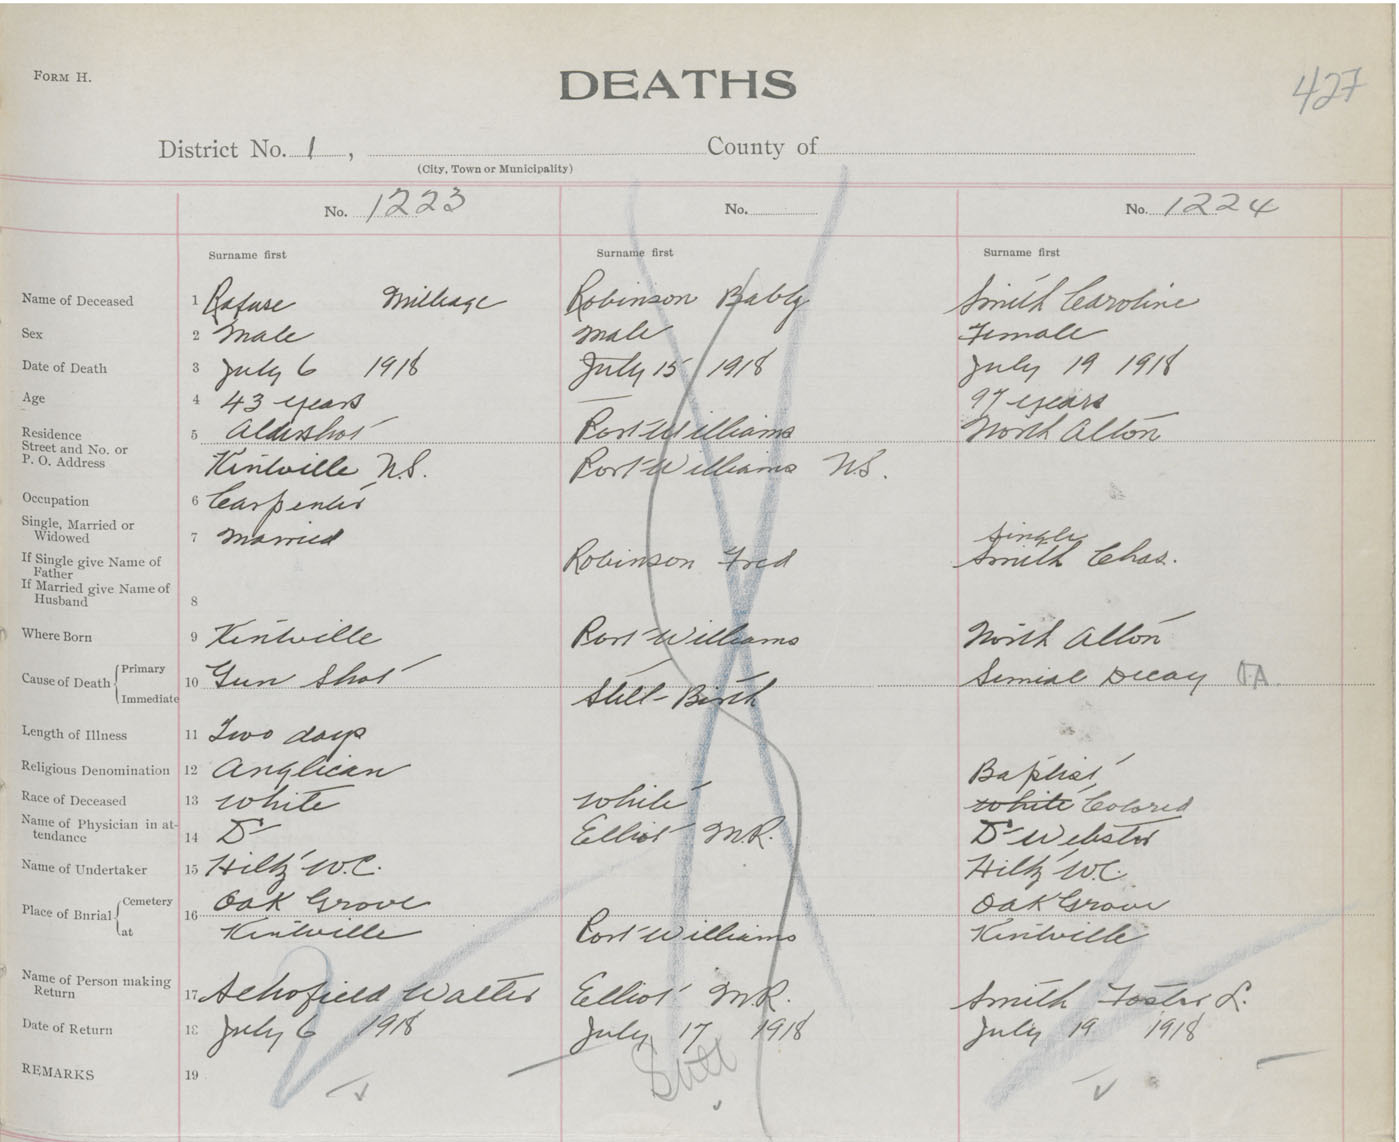 FORM H.
DEATHS
427
District No. 1, County of
(City, Town or Municipality)
No. 1223 No. No. 1224
Surname first Surname first Surname first
Name of Deceased 1 Rafuse Milleage Robinson Baby Smith Caroline
Sex 2 Male Male Female
Date of Death 3 July 6 1918 July 15 1918 July 19 1918
Age 4 43 years — 97 years
Residence 5 Aldershot Port Williams North Alton
Street and No. or
P. O. Address Kentville N.S. Port Williams N.S.
Occupation 6 Carpenter
Single, Married or
Widowed 7 Married Single
If Single give Name of
Father Robinson Fred Smith Chas.
If Married give Name of
Husband 8
Where Born 9 Kentville Port Williams North Alton
Cause of Death Primary 10 Gun Shot Senial Decay
Immediate Still-Birth
Length of Illness 11 Two days
Religious Denomination 12 Anglican Baptist
Race of Deceased 13 White White White Colored
Name of Physician in at-
tendance 14 Dr Elliot M.R. Dr Webster
Name of Undertaker 15 Hiltz W.C. Hiltz W.C.
Place of Burial Cemetery 16 Oak Grove Oak Grove
at Kentville Port Williams Kentville
Name of Person making
Return 17 Schofield Walter Elliot M.R. Smith Foster L.
Date of Return 18 July 6 1918 July 17 1918 July 19 1918
Still
REMARKS 19